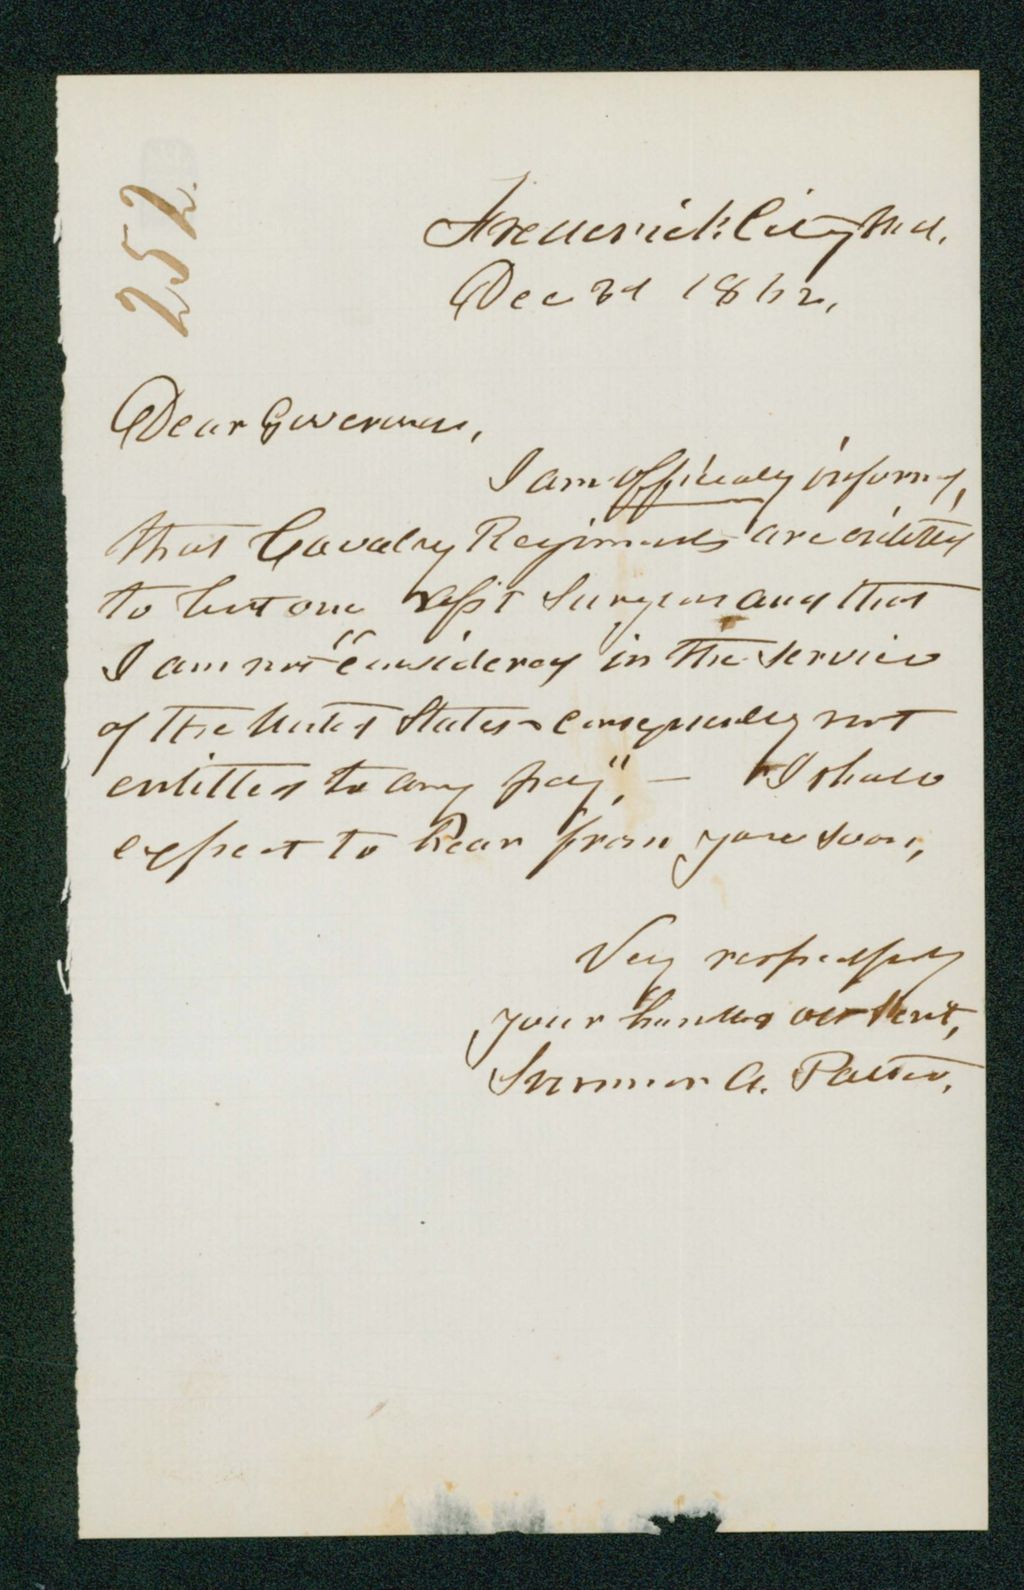 252.
Frederick City Md.
Dec 31 1862,
Dear Governor,
I am officially informed,
that Cavalry Regiments are entitled
to but one Asst Surgeon and that
I am not "considered in the service
of the United States - consequently not
entitled to any pay", — I shall
expect to hear from you soon,
Very respectfully
your humble obt Servt,
Sumner A. Patten.